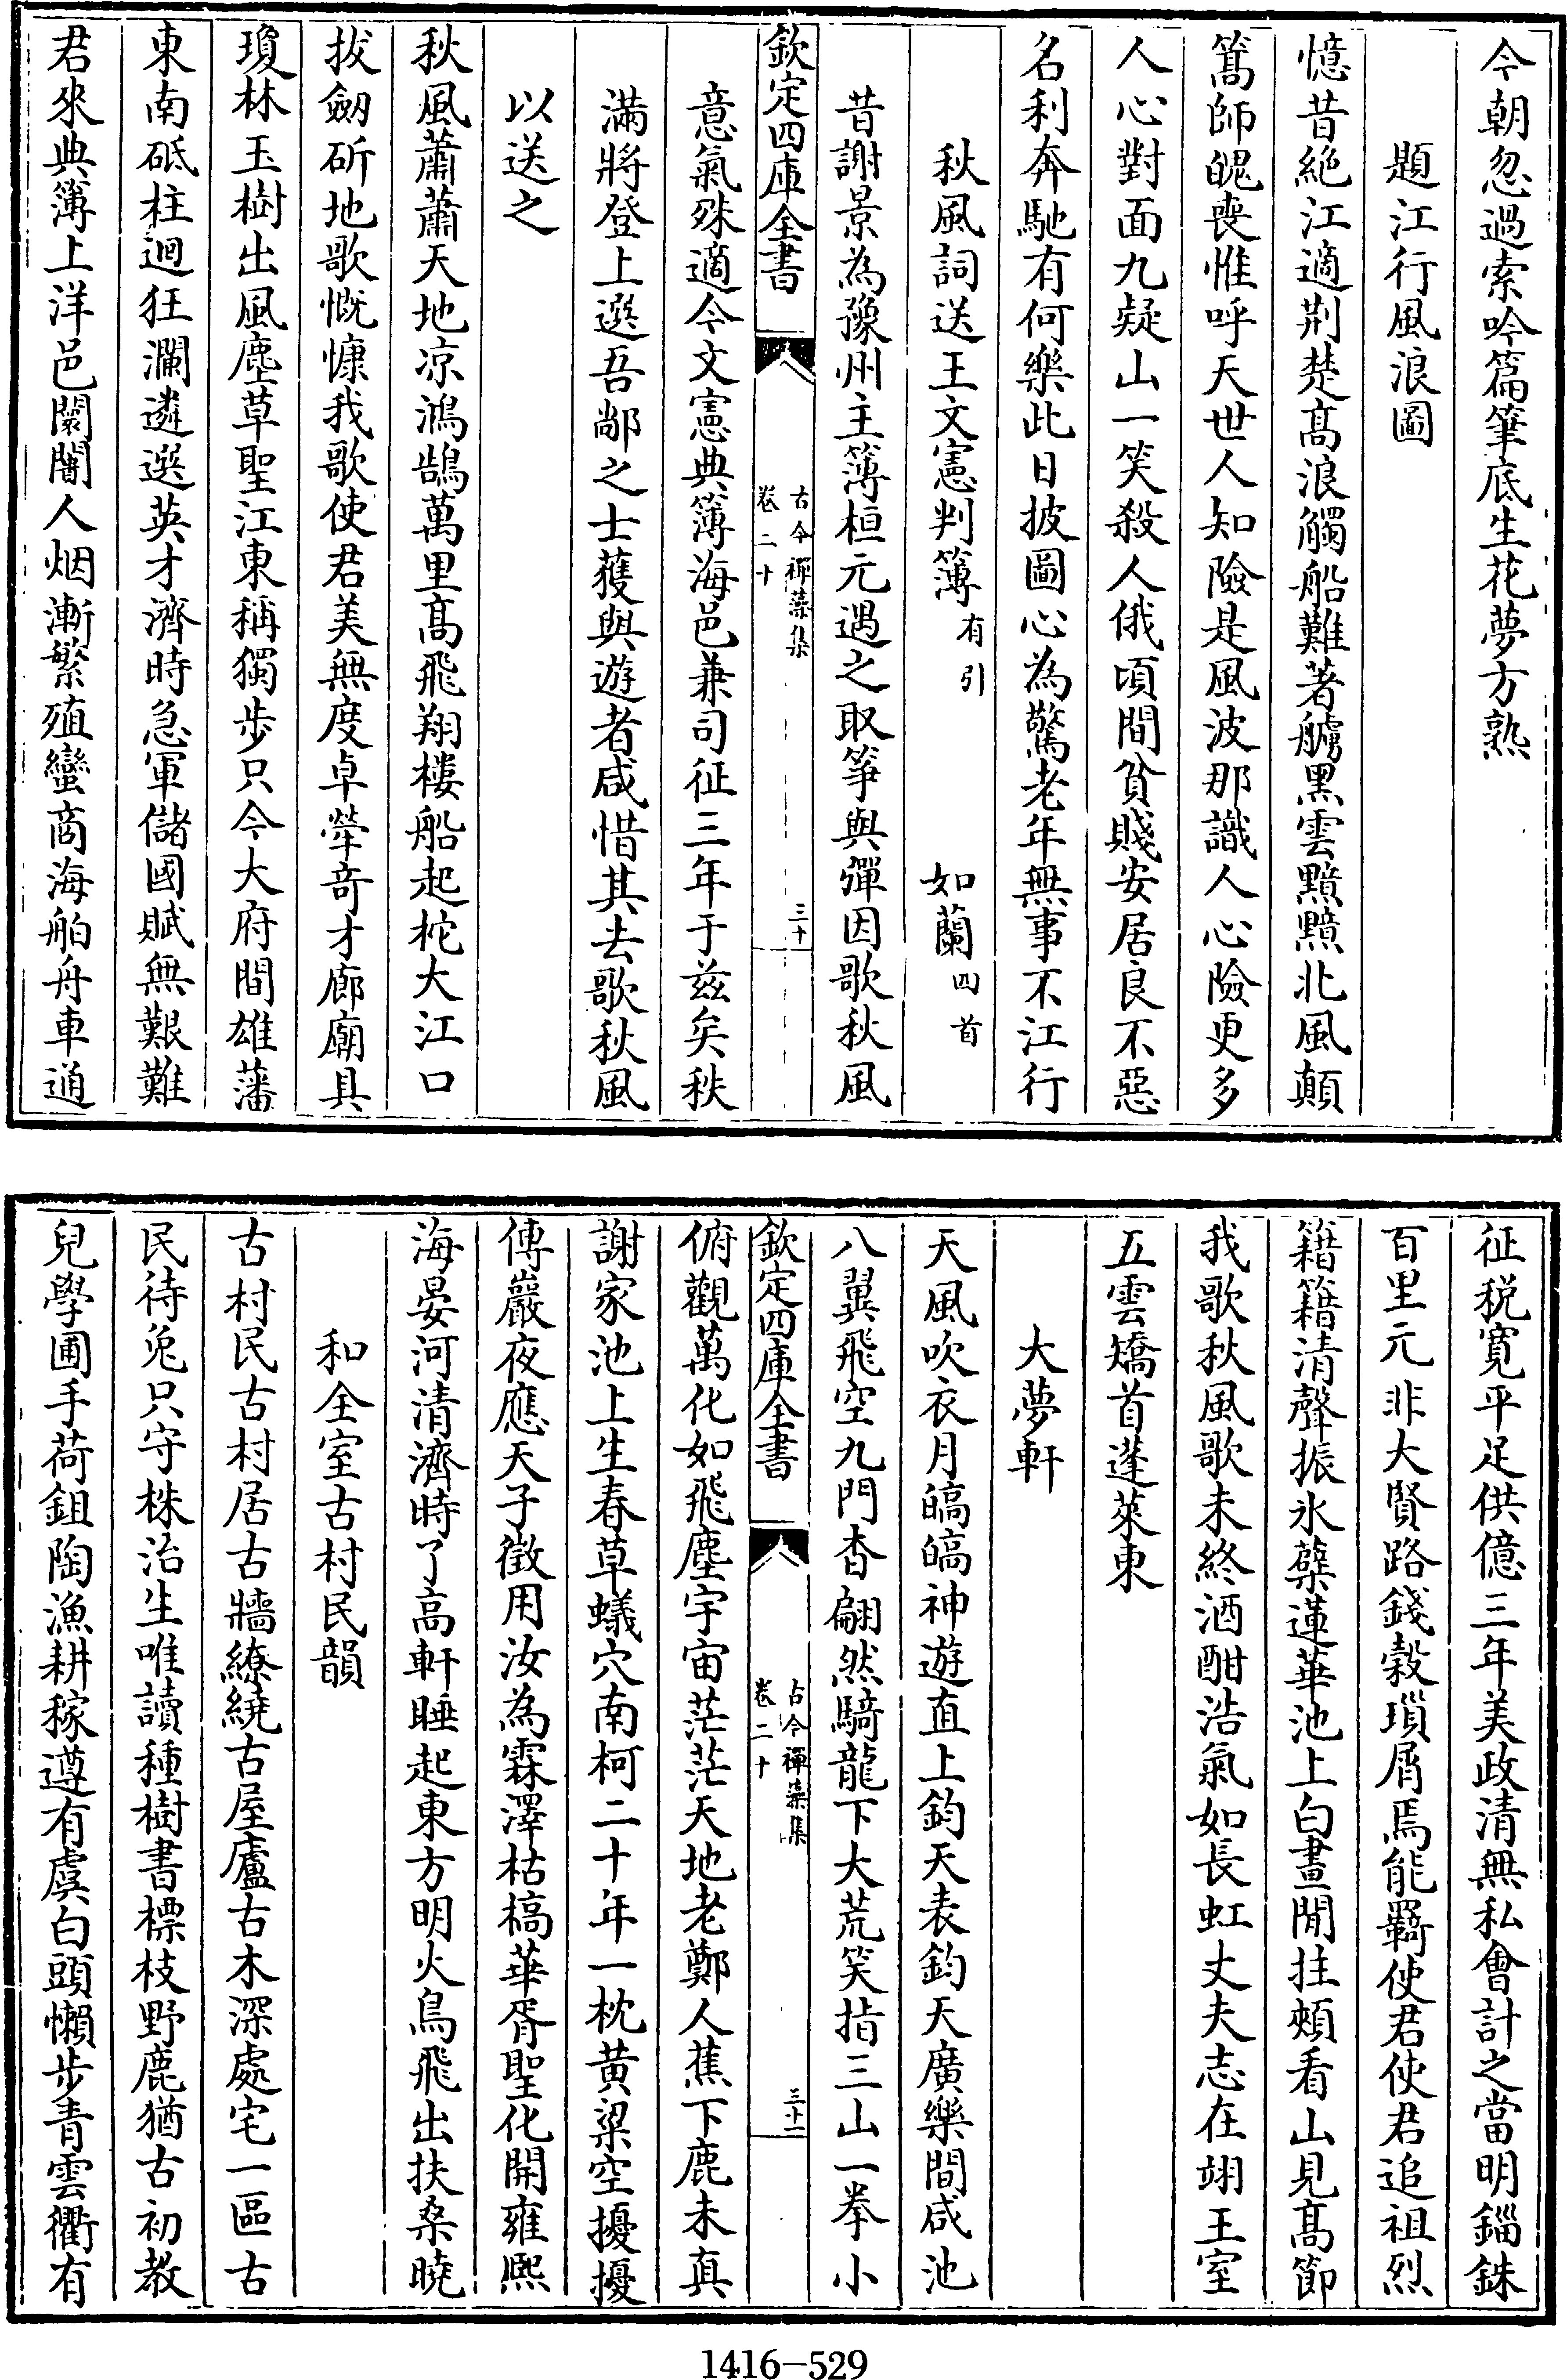 今朝忽過索吟篇筆底生花夢方熟
題江行風浪圖
憶昔絶江適荆楚髙浪觸船難著艣黑雲黯黯北風顛
篙師魄喪惟呼天世人知險是風波那識人心險更多
人心對面九疑山一笑殺人俄頃間貧賤安居良不惡
名利奔馳有何樂此日披圖心為驚老年無事不江行
秋風詞送王文憲判簿有引 如蘭四首
昔謝景為豫州主簿桓元遇之取筝與彈因歌秋風
欽定四庫全書 古今禪藻集 卷二十 三十
意氣殊適今文憲典簿海邑兼司征三年于兹矣秩
滿將登上選吾鄙之士獲與遊者咸惜其去歌秋風
以送之
秋風蕭蕭天地凉鴻鵠萬里髙飛翔楼船起柁大江口
拔劒斫地歌慨慷我歌使君美無度卓犖竒才廊廟具
瓊林玉樹出風塵草聖江東稱獨步只今大府間雄藩
東南砥柱迴狂瀾遴選英才濟時急軍儲國賦無艱難
君來典簿上洋邑闤闠人烟漸繁殖蠻商海舶舟車通
征税寛平足供億三年美政清無私會計之當明錙銖
百里元非大賢路錢穀瑣屑焉能羇使君使君追祖烈
籍籍清聲振氷蘗蓮華池上白晝閒拄頰看山見髙節
我歌秋風歌未終酒酣浩氣如長虹丈夫志在翊王室
五雲矯首蓬萊東
大夢軒
天風吹衣月皜皜神遊直上鈞天表鈞天廣樂間咸池
八翼飛空九門杳翩然騎龍下大荒笑指三山一拳小
欽定四庫全書 古今禪藻集 卷二十 三十一
俯觀萬化如飛塵宇宙茫茫天地老鄭人蕉下鹿未真
謝家池上生春草蟻穴南柯二十年一枕黄粱空擾擾
傅巖夜應天子徵用汝為霖澤枯槁華胥聖化開雍熙
海晏河清濟時了高軒睡起東方明火烏飛出扶桑曉
和全室古村民韻
古村民古村居古牆繚繞古屋廬古木深處宅一區古
民待兔只守株治生唯讀種樹書標枝野鹿猶古初教
兒學圃手荷鉏陶漁耕稼遵有虞白頭懶步青雲衢有
1416-529